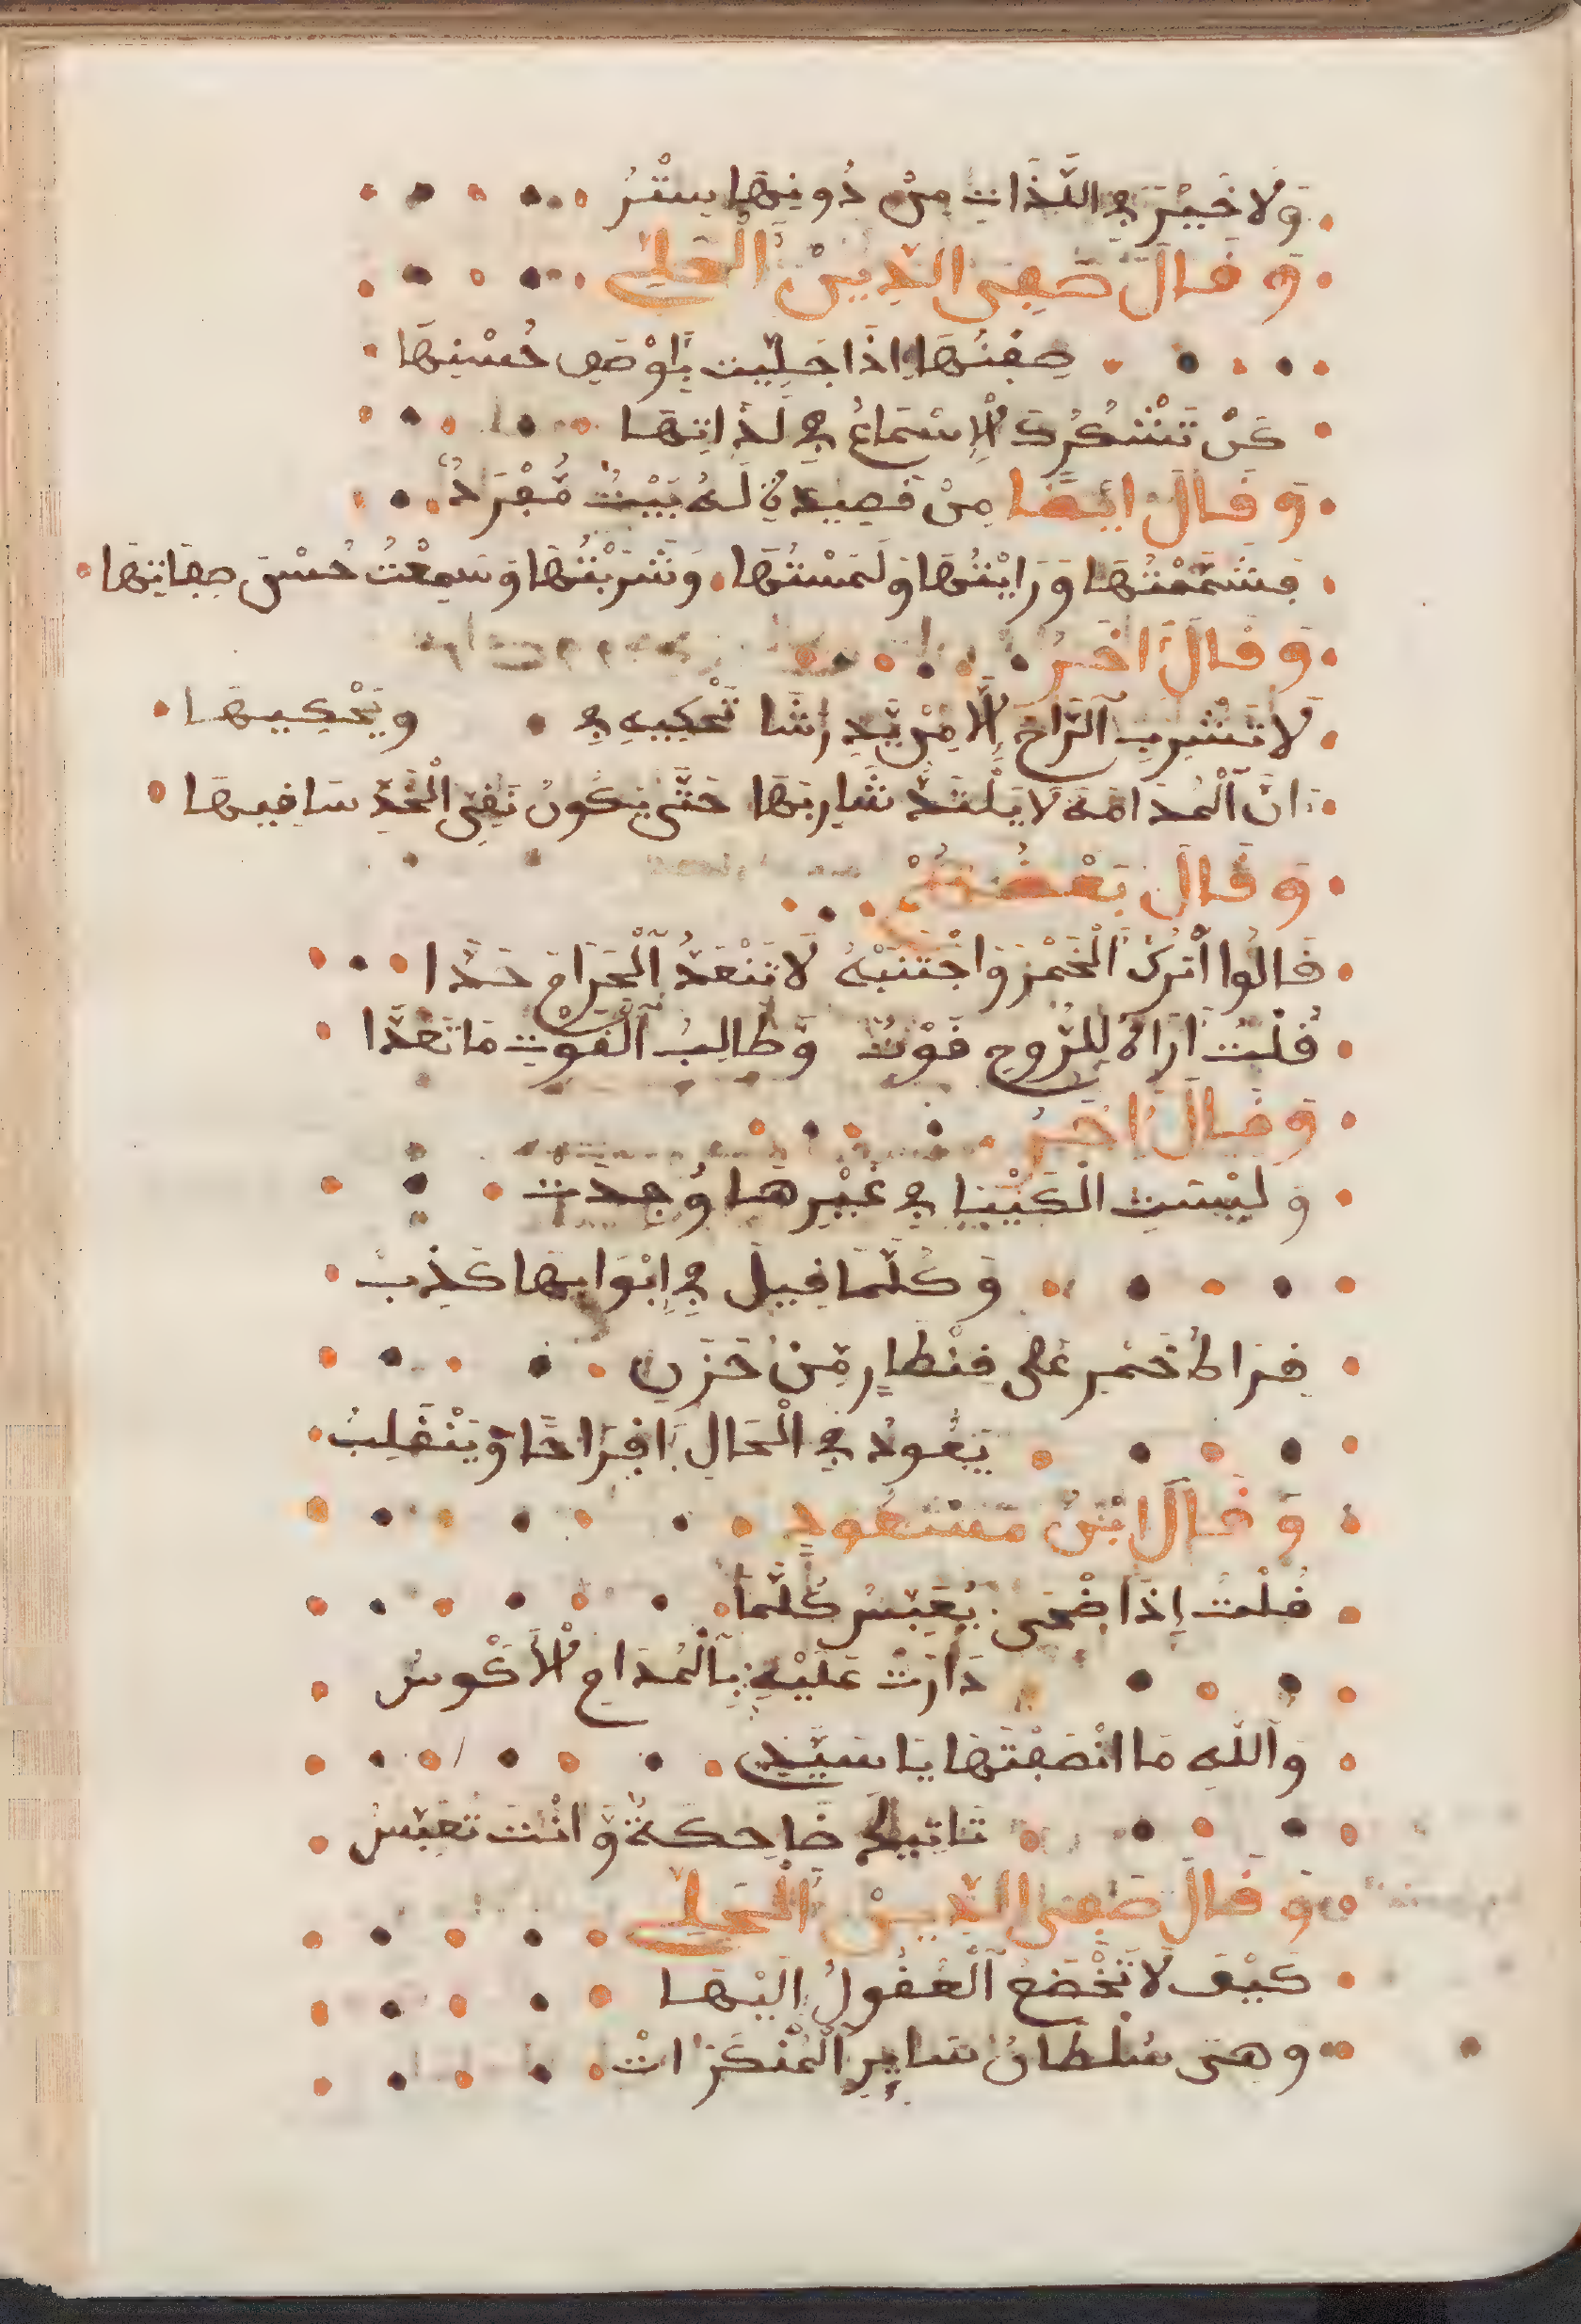 وَلَا خَيْرَ فِي اللَّذَّاتِ مِنْ دُونِهَا سِتْرُ
وَقَالَ صَفِي الدِّينْ الْحِلِّي
صِفَتُهَا إِذَا جُلِيَت بِأَوْصَفِ حُسْنِهَا
كَيْ تَشْكُرَكَ الْإِسْمَاعُ فِي لَذَاتِهَا
وَقَالَ ايْضًا مِنْ قَصِيدَةٍ لَهُ بَيْتٌ مُّفْرَدٌ
فَشَمَّمْتُهَا وَرَايْتُهَا وَلَمَسْتُهَا وَشَرِبْتُهَا وَسَمِعْتُ حُسْنَ صِفَاتِهَا
وَقَالَ اخَرُ
لَا تَشْرَبِ الرَّاحَ إِلَّا مِنْ يَّدِ رَشَا تَحْكِيهِ فِي وَيَحْكِيهَا
انَّ الْمُدَامَةَ لَا يَلْتَذُّ شَارِبُهَا حَتَّى يَكُونُ نَقِيَّ الْخَدِّ سَاقِيهَا
وَقَالَ بَعْضُهُمْ
قَالُوا اتْرُكْ الْخَمْرَ وَاجْتَنِبْهُ لَا تَتْعَدُّ الْحَرَامَ حَدًّا
قُلْتُ أَرَاهُ لِلرُّوحِ قُوْتٌ وَطَالِبُ الْقُوْتِ مَا تَعَدَّا
وَقَالَ اخَرُ
وَلَيْسَتِ الْكَيْيَا فِي غَيْرِهَا وُجِدَت
وَكُلَّمَا قِيلَ فِي ابْوَابِهَا كَذِبُ
قِرَاطُ خَمْرٍ عَلَى قِنْطَارٍ مِّنْ حَزَنٍ
يَعُودُ فِي الْحَالِ افْرَاحًا وَّيَنْقَلِبُ
وَقَالَ ابْنُ مَسْعُودٍ
قُلْتُ إِذَا ضْحَى يُعَبِّسُ كُلَّمَا
دَارَتْ عَلَيْهِ بِالْمُدَامِ الْأَكْوسُ
وَاللَّهِ مَا انْصَفْتَهَا يَا سَيِّدِي
تَاتِيكَ ضَاحِكَةٌ وَّانْتَ تُعَبِّسُ
وَقَالَ صَفِي الدِّينْ الْحِلِّي
كَيْفَ لَا تَخْضَعُ الْعُقُولُ الَيْهَا
وَهِيَ سُلْطَانُ سَايِرِ الْمُنْكَرَاتْ